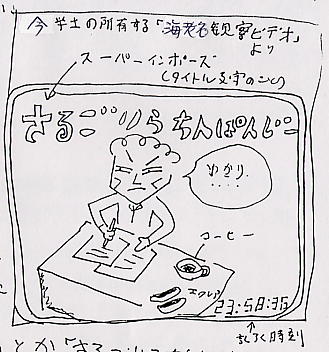 今 学士の所有する「海老名観察ビデオ」
より
スーパーインポーズ
(タイトル文字のこと)
さるごりらちんぱんじー
コーヒー
エクレア
23:58:35
時刻